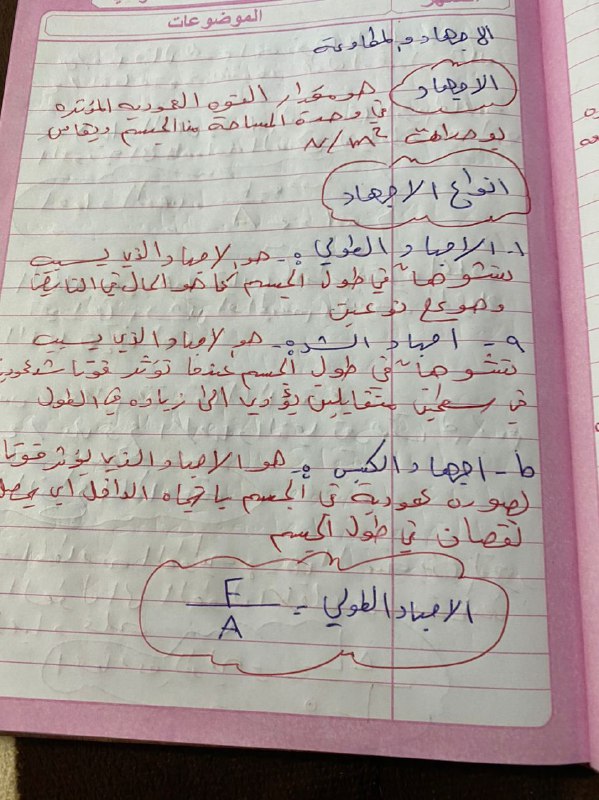 الموضوعات
الاجهاد والمطاوعة
الاجهاد هو مقدار القوه العموديه المؤثره
في وحدة المساحة من الجسم ويقاس
بوحدات N/m²
انواع الاجهاد
١- الاجهاد الطولي :- هو الاجهاد الذي يسبب
تشوهاً في طول الجسم كما هو الحال في
وهو على نوعين
٩- اجهاد الشد :- هو الاجهاد الذي يسبب
تشوهاً في طول الجسم عندما تؤثر قوتا شد
في سطحين متقابلين يؤدي الى زياده في الطول
ط- اجهاد الكبس :- هو الاجهاد الذي يؤثر قوتا
بصورة عمودية في الجسم باتجاه الداخل أي يحصل
نقصان في طول الجسم
الاجهاد الطولي = F / A